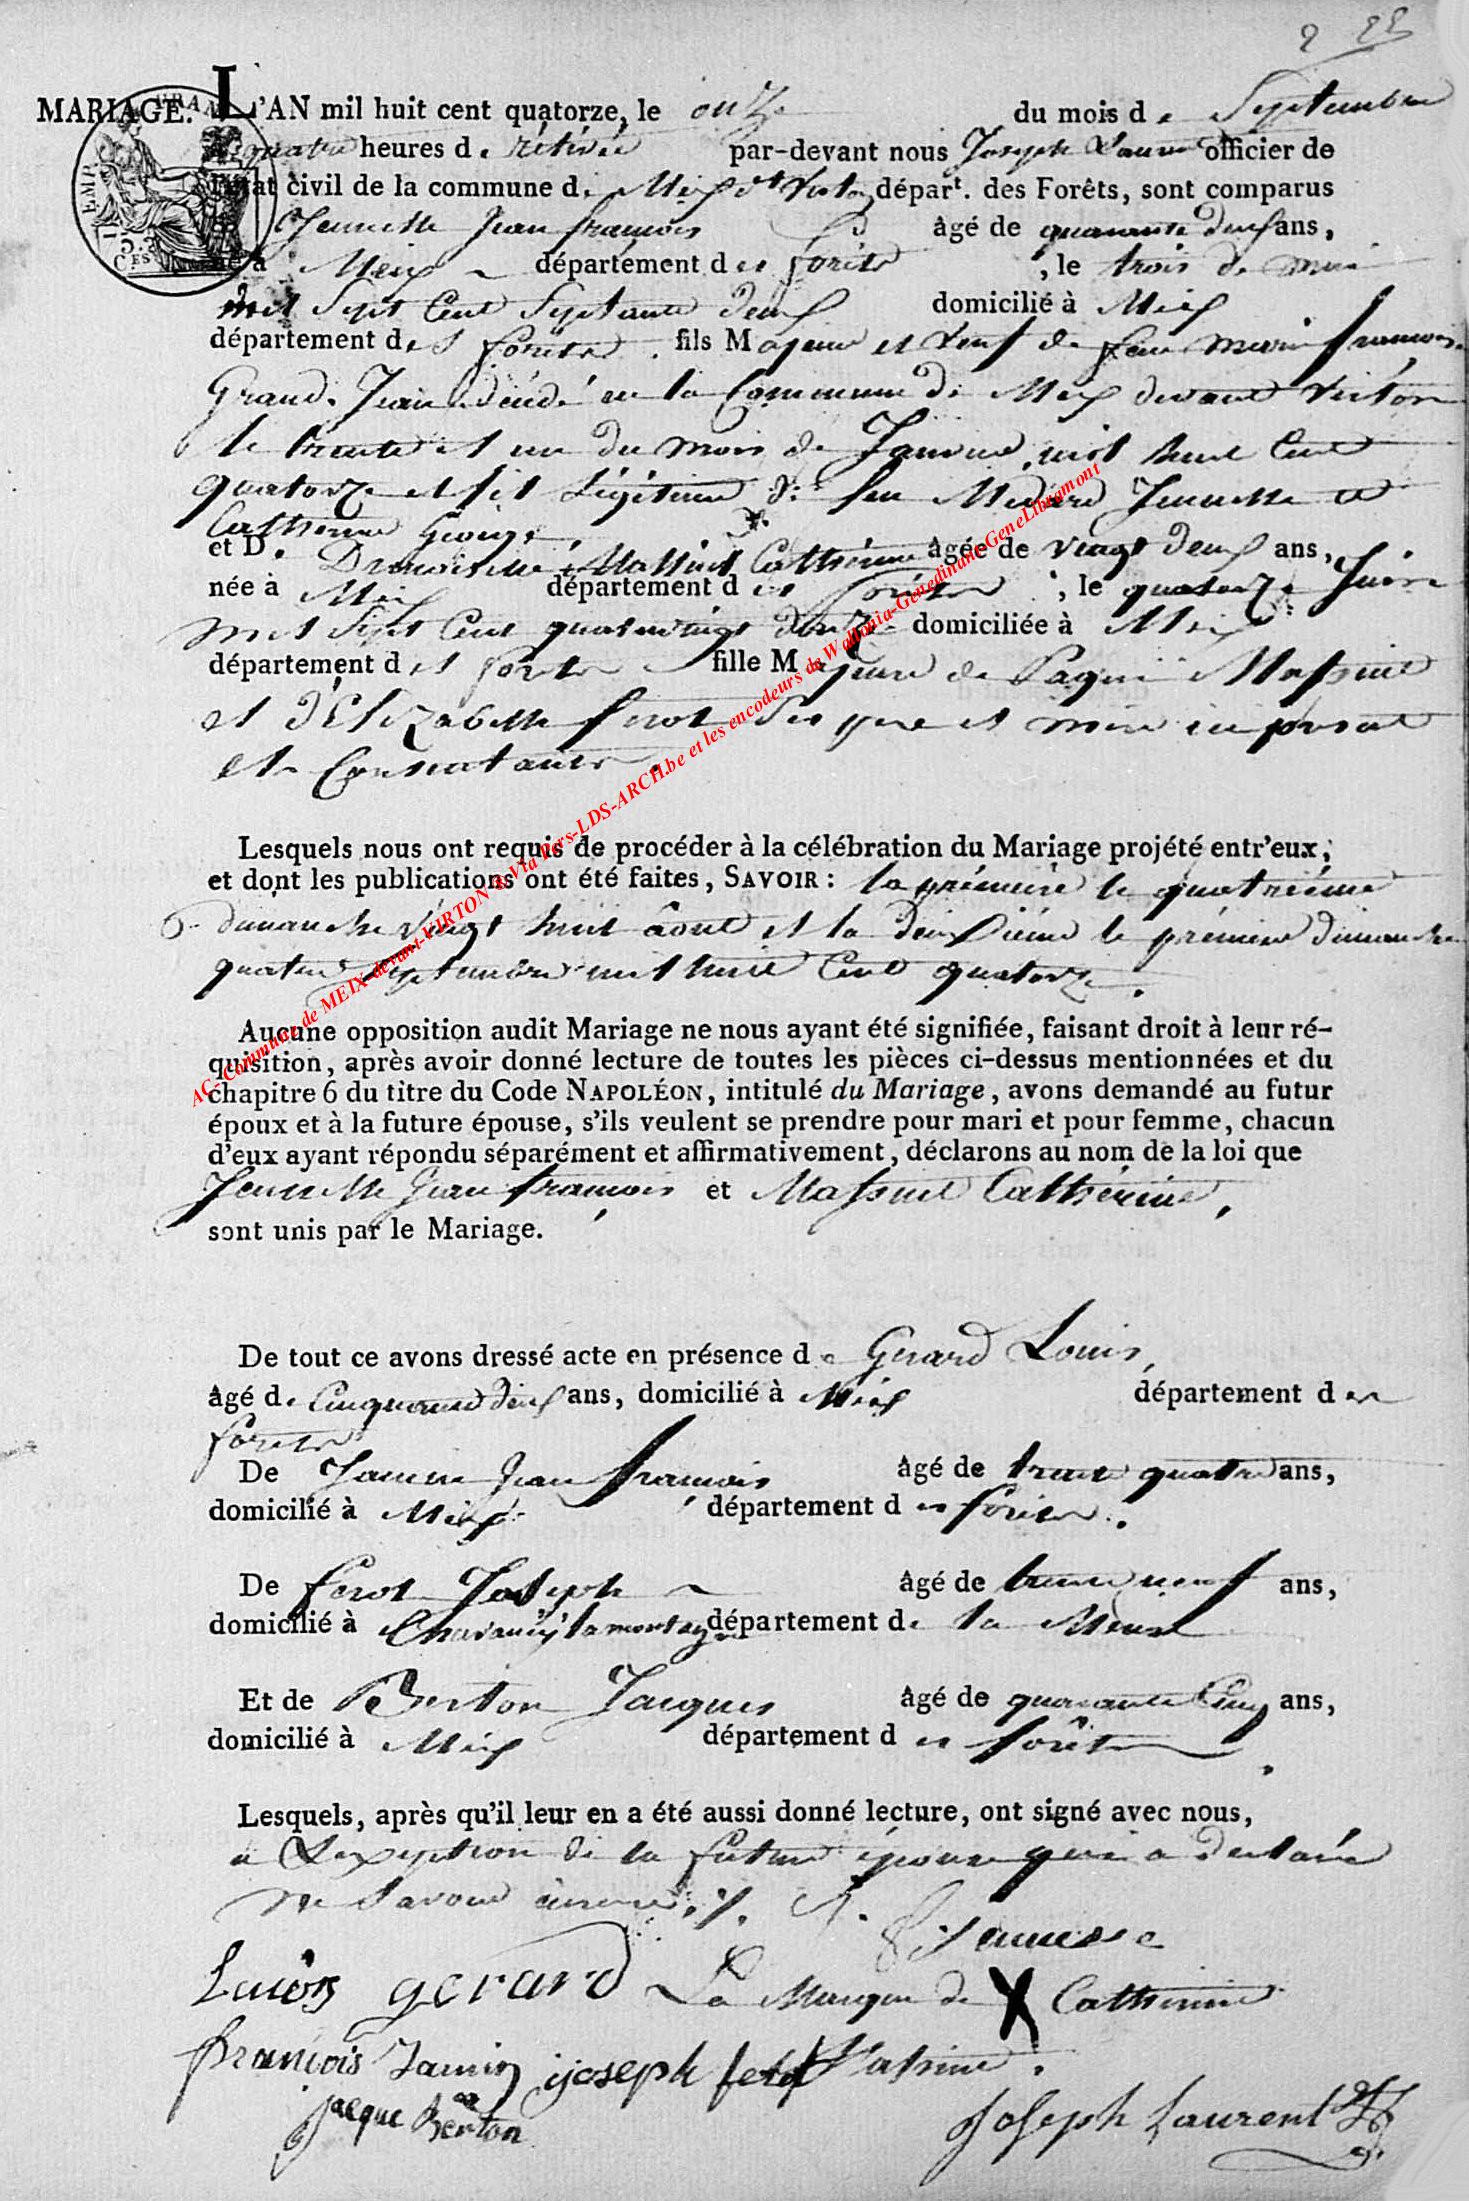 2 25
MARIAGE. L'AN mil huit cent quatorze, le onze du mois de Septembre
quatre heures de rélévée par-devant nous Joseph Laurent officier de
l'état civil de la commune de Meix dt Virton départ. des Forêts, sont comparus
Jennesse Jean françois âgé de quarante deux ans,
né à Meix département des forêts, le trois de mai
mil Sept Cent Septante deux domicilié à Meix
département des forêts. fils Majeur et Veuf de feue Marie françoise
Grand-Jean décédé en la Commune de Meix devant Virton
le trente et un du mois de Janvier, mil huit Cent
quatorze et fils légitime de feu Médard Jennesse et
Catherine George,
et D.e Demoiselle Massinet Catthérine âgée de vingt deux ans,
née à Meix département des forêts, le quatorze Juin
mil Sept Cent quatrevingt douze domiciliée à Meix
département des forêts fille Majeure de
et d'Elizabette ferot Ses pere et mere ici present
et Consentants.
Lesquels nous ont requis de procéder à la célébration du Mariage projété entr'eux,
et dont les publications ont été faites, SAVOIR : la prémiére le quatriéme
dimanche vingt huit âout et la deuxiéme le prémier dimanche
quatre Septembre mil huit Cent quatorze.
AC- Commune de MEIX-devant-VIRTON & Via Pers-LDS-ARCH.be et les encodeurs de Wallonia-Genedinant-GeneLibramont
Aucune opposition audit Mariage ne nous ayant été signifiée, faisant droit à leur ré-
quisition, après avoir donné lecture de toutes les pièces ci-dessus mentionnées et du
chapitre 6 du titre du Code NAPOLÉON, intitulé du Mariage, avons demandé au futur
époux et à la future épouse, s'ils veulent se prendre pour mari et pour femme, chacun
d'eux ayant répondu séparément et affirmativement, déclarons au nom de la loi que
Jennesse Jean françois et Massinet Catthérine,
sont unis par le Mariage.
De tout ce avons dressé acte en présence de Gerard Louis,
âgé de Cinquante deux ans, domicilié à Meix département des
forêts
De Jamin Jean françois âgé de trente quatre ans,
domicilié à Meix département des forêts.
De ferot Joseph âgé de trente neuf ans,
domicilié à Chavancÿ la montagne département de la Meuse
Et de Berton Jacques âgé de quarante Cinq ans,
domicilié à Meix département des forêts.
Lesquels, après qu'il leur en a été aussi donné lecture, ont signé avec nous,
a L'exception de la future épouse qui a declarée
ne Savoir écrire.
Jennesse
Louis gerard La Marque de X Catthérine
françois Jamin joseph ferot Massinet.
jacque Berton
Joseph Laurent